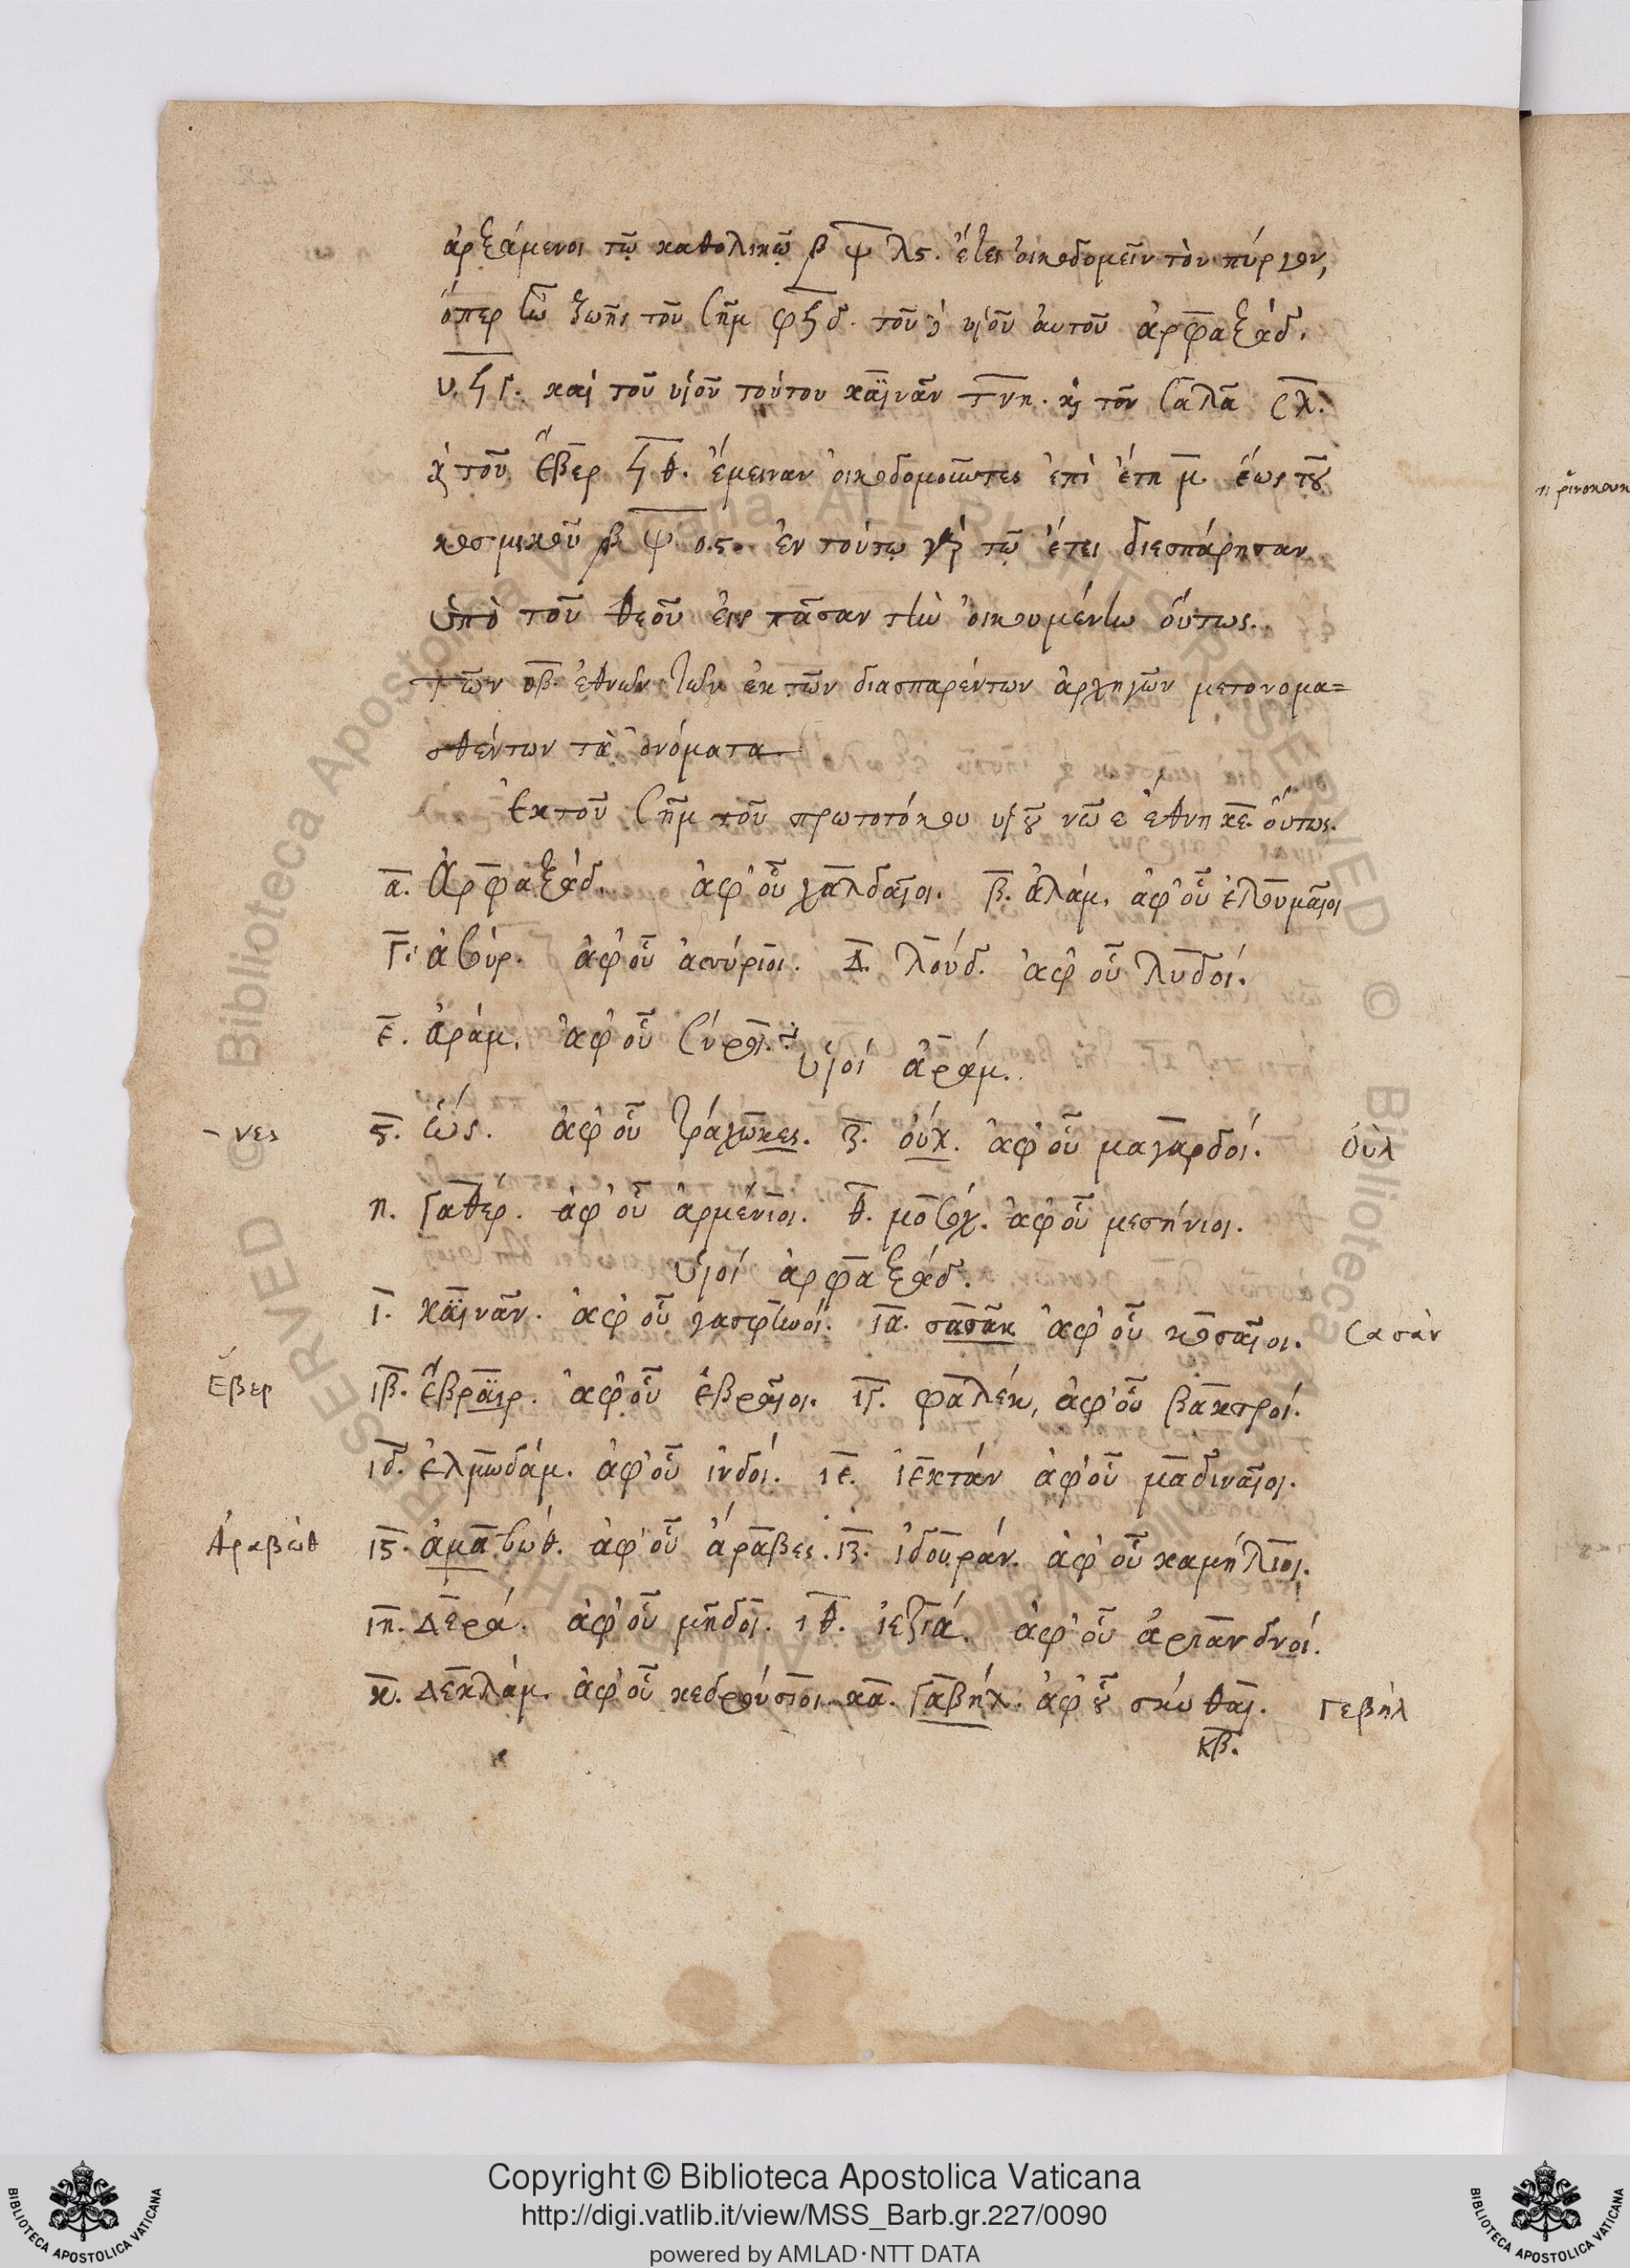 ἀρξάμενοι τῷ καθολικῷ βψλϛ. ἔτει οἰκοδομεῖν τὸν πύργον,
ὅπερ ἦν ζωῆς τοῦ Σῆμ φϟδ. τοῦ δὲ υἱοῦ αὐτοῦ ἀρφαξάδ.
υ.ϟγ. καὶ τοῦ υἱοῦ τούτου καϊνᾶν τνη. κ̀ τοῦ Σαλᾶ σκ.
κ̀ τοῦ Ἔβερ ϟθ. ἔμειναν οἰκοδομοῦντες ἐπὶ ἔτη μ. ἕως τοῦ
κοσμικοῦ βψοϛ. ἐν τούτῳ γὰρ τῷ ἔτει διεσπάρησαν
ὑπὸ τοῦ θεοῦ εἰς πᾶσαν τὴν οἰκουμένην οὕτως.
τῶν οβ. ἐθνῶν τῶν ἐκ τῶν διασπαρέντων ἀρχηγῶν μετονομα=
σθέντων τὰ ὀνόματα
Ἐκ τοῦ Σῆμ τοῦ πρωτοτόκου υἱοῦ νῶε ἔθνη κε. οὕτως.
α. Ἀρφαξάδ. ἀφ' οὗ χαλδαῖοι. β. ἀλάμ. ἀφ' οὗ ἐλουμαῖοι
Γ. ἀσούρ. ἀφ' οὗ ἀσσύριοι. Δ. λούδ. ἀφ' οὗ λυδοί.
ε. ἀράμ. ἀφ' οὗ Σύροι.
υἱοί ἀράμ.
-νες ϛ. ὡς. ἀφ' οὗ τράχωκες. ζ. οὐχ. ἀφ' οὗ μαγαρδοί. Οὐλ
η. Γαθέρ. ἀφ' οὗ ἀρμένιοι. θ. μοσόχ. ἀφ' οὗ μεσήνιοι.
υἱοί ἀρφαξάδ.
ι. καϊνᾶν. ἀφ' οὗ γασφηνοί. ια. σασᾶκ ἀφ' οὗ κοσαῖοι. Σασὰν
Ἔβερ ιβ. ἔβραϊρ. ἀφ' οὗ ἑβραῖοι. ιγ. φαλέκ, ἀφ' οὗ βακτροί.
ιδ. ἐλμωδάμ. ἀφ' οὗ ἰνδοί. ιε. ἰεκτάν ἀφ' οὗ μαδιναῖοι.
Ἀραβὼθ ιϛ. ἀμασώθ. ἀφ' οὗ ἄραβες. ιζ. ἰδουράν. ἀφ' οὗ καμήλιοι.
ιη. Δερά. ἀφ' οὗ μῆδοι. ιθ. ἰεζιά. ἀφ' οὗ ἀριανδνοί.
κ. Δεκλάμ. ἀφ' οὗ κεδρούσιοι. κα. Γαβήχ. ἀφ' οὗ σκύθαι. Γεβὴλ
κβ.
Copyright © Biblioteca Apostolica Vaticana
http://digi.vatlib.it/view/MSS_Barb.gr.227/0090
powered by AMLAD·NTT DATA